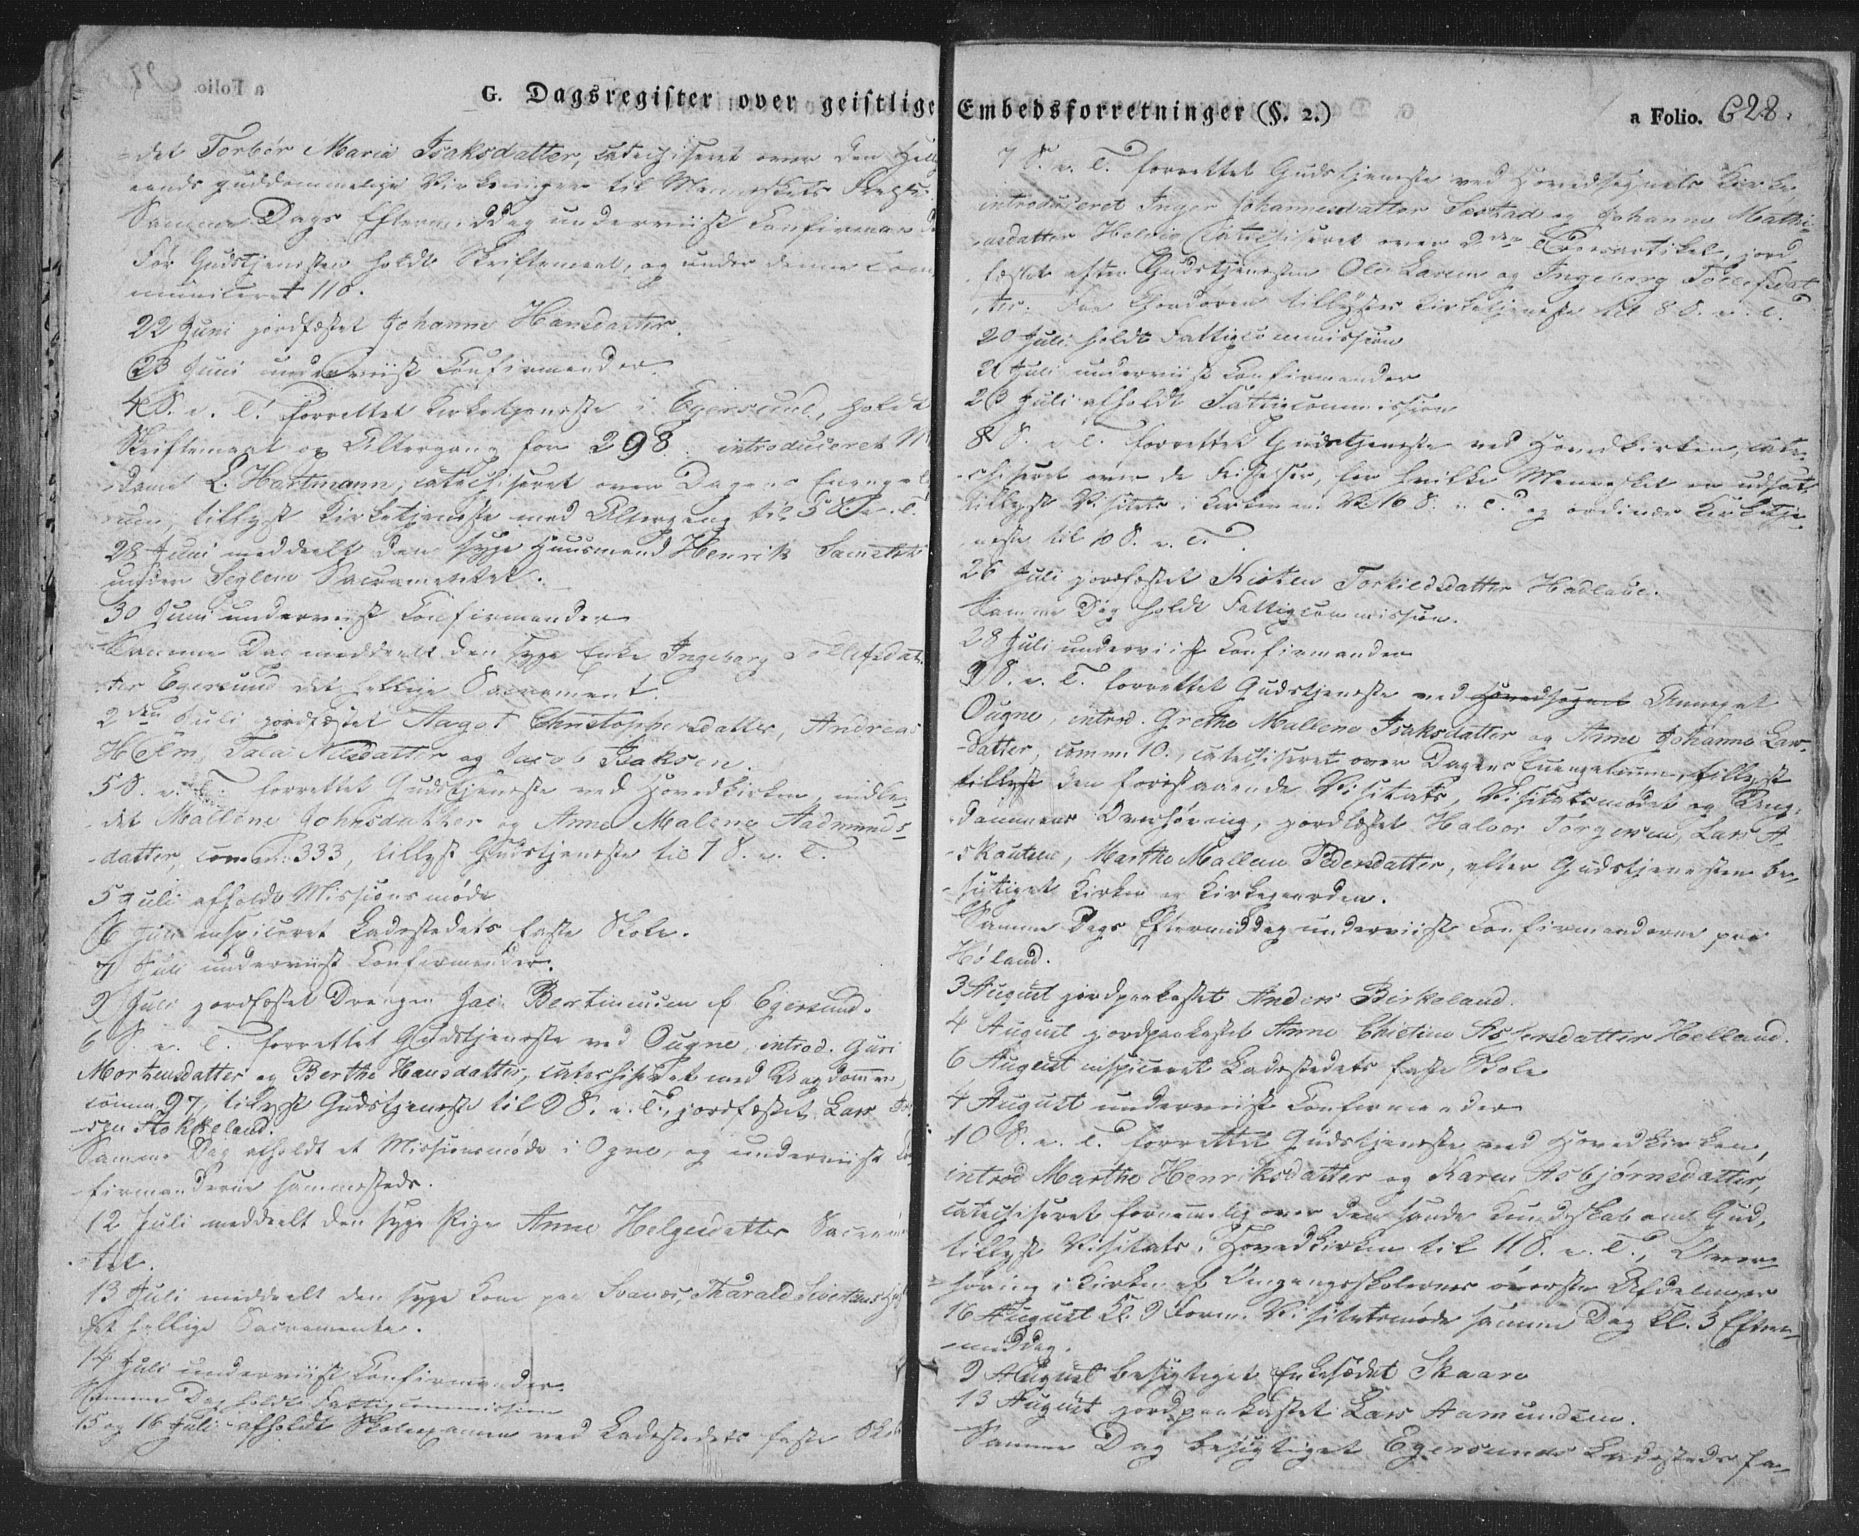 G. Dagsregister over geistlige Embedsforretninger (§. 2.)
a Folio. 628.
det Torbør Maria Isaksdatter, catechiseret over den Hellig
aands guddommelige Virkninger til Menneskets Frelse.
Samme Dags Efterm.Ddag underviist Confirmander
Før Gudstjenesten holdt Skriftemaal, og under denne com
municeret 110.
22 Juni jordfæstet Johanne Hansdatter.
23 Juni underviist Confirmander.
4 S. e. T. Forrettet Kirketjeneste i Egersund, holdt
Skriftemaal og Altergang for 298. introduceret M
dame L. Hartmann, catechiseret over Dagens Evangeli
um, tillyst Kirketjeneste med Altergang til 5 S. e. T.
28 Juni meddeelt den syge Huusmand Henrik
under Seglem Sacramentet.
30 Juni underviist Confirmander
Samme Dag meddeelt den syge Enke Ingeborg Tollefsdat
ter Egersund det hellige Sacrament.
2den Juli jordfæstet Aagot Christophersdatter, Andreas
Tala Nilsdatter og Jacob Isaksen.
5 S. e. T. forrettet Gudstjeneste ved Hovedkirken, indle-
det Mallene Johnsdatter og Anne Malene Aadmunds
datter, comm: 333, tillyst Gudstjeneste til 7 S. e. T.
5 Juli afholdt Missionsmøde
6 Juli inspiceret Ladestedets faste Skole.
7 Juli underviist Confirmander.
9 Juli jordfæstet Drengen Jac. Bertinius af Egersund.
6 S. e. T. forrettet Gudstjeneste ved Ougne, introd. Guri
Mortensdatter og Berthe Hansdatter, catechiseret med Ungdommen,
comm. 97, tillyst Gudstjeneste til 9 S. e. T., jordfæstet Lars
sen Stokkeland.
Samme Dag afholdt et Missionsmøde i Ogne, og underviist Con
firmanderne sammesteds.
12 Juli meddeelt den syge Pige Anne Helgesdatter Sacramen
tet.
13 Juli meddeelt den syge Kone paa Svanes, Tharald Sivertsens
det hellige Sacramente.
14 Juli underviist Confirmander.
Samme Dag holdt Fattigcommission
15 og 16 Juli afholdt Skoleexamen ved Ladestedets faste Skole
7 S. e. T. forrettet Gudstjeneste ved Hovedsognets Kirke,
introduceret Inger Johannesdatter Sæstad og Johanne Mathi-
asdatter catechiseret over 2den Troesartikel, jord
fæstet efter Gudstjenesten Ole Larsen og Ingeborg Tollefsdat
ter. Fra Chordøren tillyst Kirketjeneste til 8 S. e. T.
20 Juli holdt Fattigcommission
21 Juli underviist Confirmander
23 Juli afholdt Fattigcommission
8 S. e. T. forrettet Gudstjeneste ved Hovedkirken, cate-
chiseret over de Fristelser, for hvilke Mennesket er udsat,
tillyst Visitats i Kirken til 10 S. e. T. og ordinær Kirketje-
neste til 10 S. e. T.
26 Juli jordfæstet Kisten Torkildsdatter Hadland.
Samme Dag holdt Fattigcommission.
28 Juli underviist Confirmander
9 S. e. T. forrettet Gudstjeneste ved Hovedsognet Annexet
Ougne, introd. Grethe Mallene Isaksdatter og Anne Johanne Lars
datter, comm. 10., catechiseret over Dagens Evangelium, tillyst
tillyst den forestaaende Visitats, Visitatsmødet og Ung-
dommens Overhøring, jordfæstet Halvor Torgersen, Lars A-
skoutsen, Marthe Mallene Pedersdatter, efter Gudstjenesten be-
sigtiget Kirken og Kirkegaarden.
Samme Dags Eftermiddag underviist Confirmanderne paa
Høland.
3 August jordpaakastet Anders Birkeland.
4 August jordpaakastet Anne Christine Helland.
6 August inspiceret Ladestedets faste Skole
4 August underviist Confirmander
10 S. e. T. forrettet Gudstjeneste ved Hovedkirken,
introd Marthe Henriksdatter og Karen Asbjørnsdatter,
catechiseret fornemmelig over den sande Kundskab om Gud,
tillyst Visitats i Hovedkirken til 11 S. e. T., Over-
høring i Kirken af Omgangsskolernes øverste Afdelinger
16 August Kl. 9 Form. Visitatsmøde samme Dag kl. 3 Efter-
middag.
9 August besigtiget Enkesædet Skaare
13 August jordpaakastet Lars Aamundsen.
Samme Dag besigtiget Egersunds Ladesteds fa-